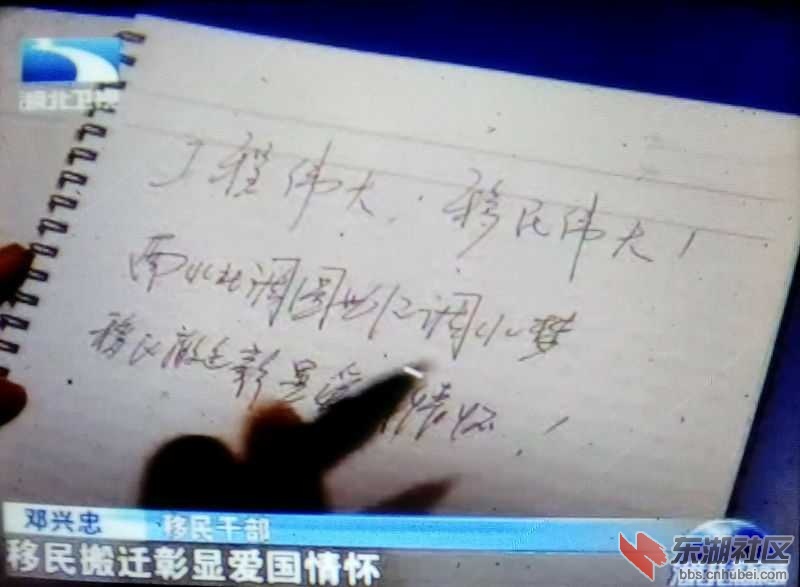 湖北卫视
工程伟大,移民伟大!
南水北调圆世纪调水梦
移民搬迁彰显爱情怀!
邓兴忠 移民干部
移民搬迁彰显爱国情怀
东湖社区
bbs.cnhubei.com